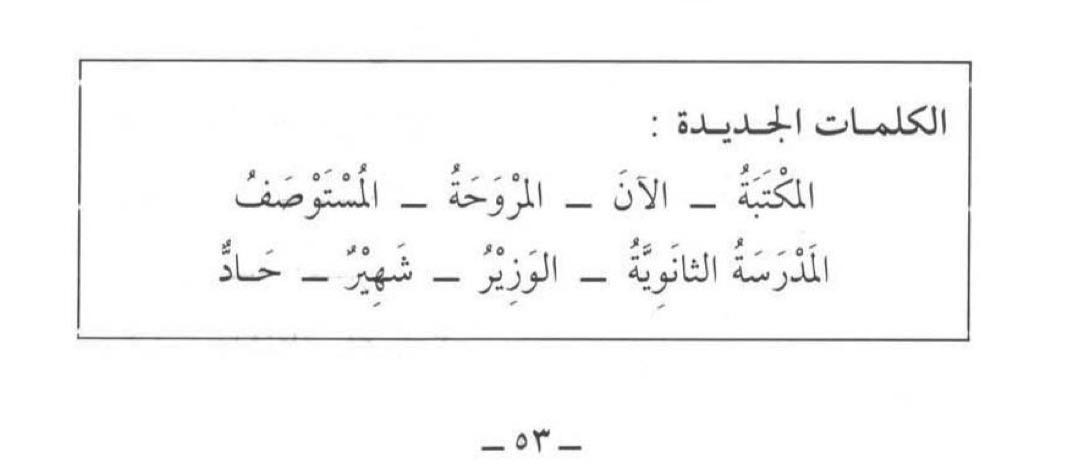 الكلمات الجديدة :
المَكْتَبَةُ ــ الآنَ ــ المِرْوَحَةُ ــ المُسْتَوْصَفُ
المَدْرَسَةُ الثانَوِيَّةُ ــ الوَزِيْرُ ــ شَهِيْرٌ ــ حَادٌّ
ــ ٥٣ ــ